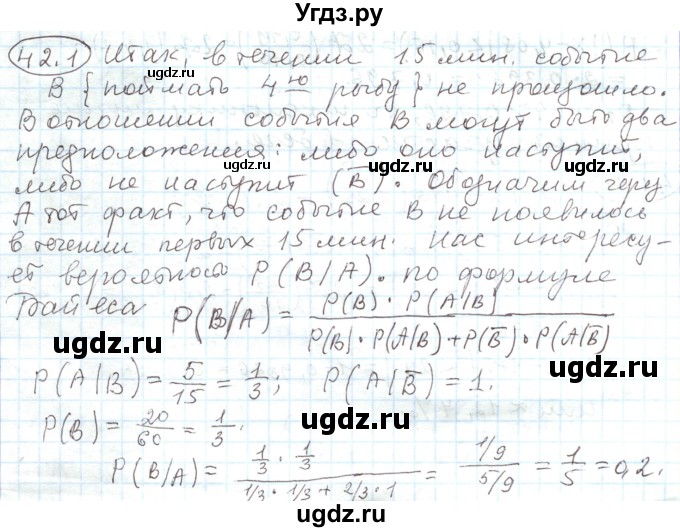 Угдз.ру
42.1 Итак, в течении 15 мин. событие
B {поймать 4 ую рыбу} не произошло.
В отношении события B могут быть два
предположения: либо оно наступит,
либо не наступит (B̅). Обозначим через
A тот факт, что событие B не появилось
в течении первых 15 мин. Нас интересу-
ет вероятность P(B/A). по формуле
Байеса P(B/A) = P(B)·P(A|B) / P(B)·P(A|B)+P(B̅)·P(A|B̅)
P(A|B) = 5/15 = 1/3; P(A|B̅) = 1.
P(B) = 20/60 = 1/3.
P(B/A) = 1/3 · 1/3 / 1/3 · 1/3 + 2/3 · 1 = 1/9 / 5/9 = 1/5 = 0,2.
ugdz.ru
ugdz.ru
ugdz.ru
ugdz.ru
ugdz.ru
ugdz.ru
ugdz.ru
ugdz.ru
ugdz.ru
ugdz.ru
ugdz.ru